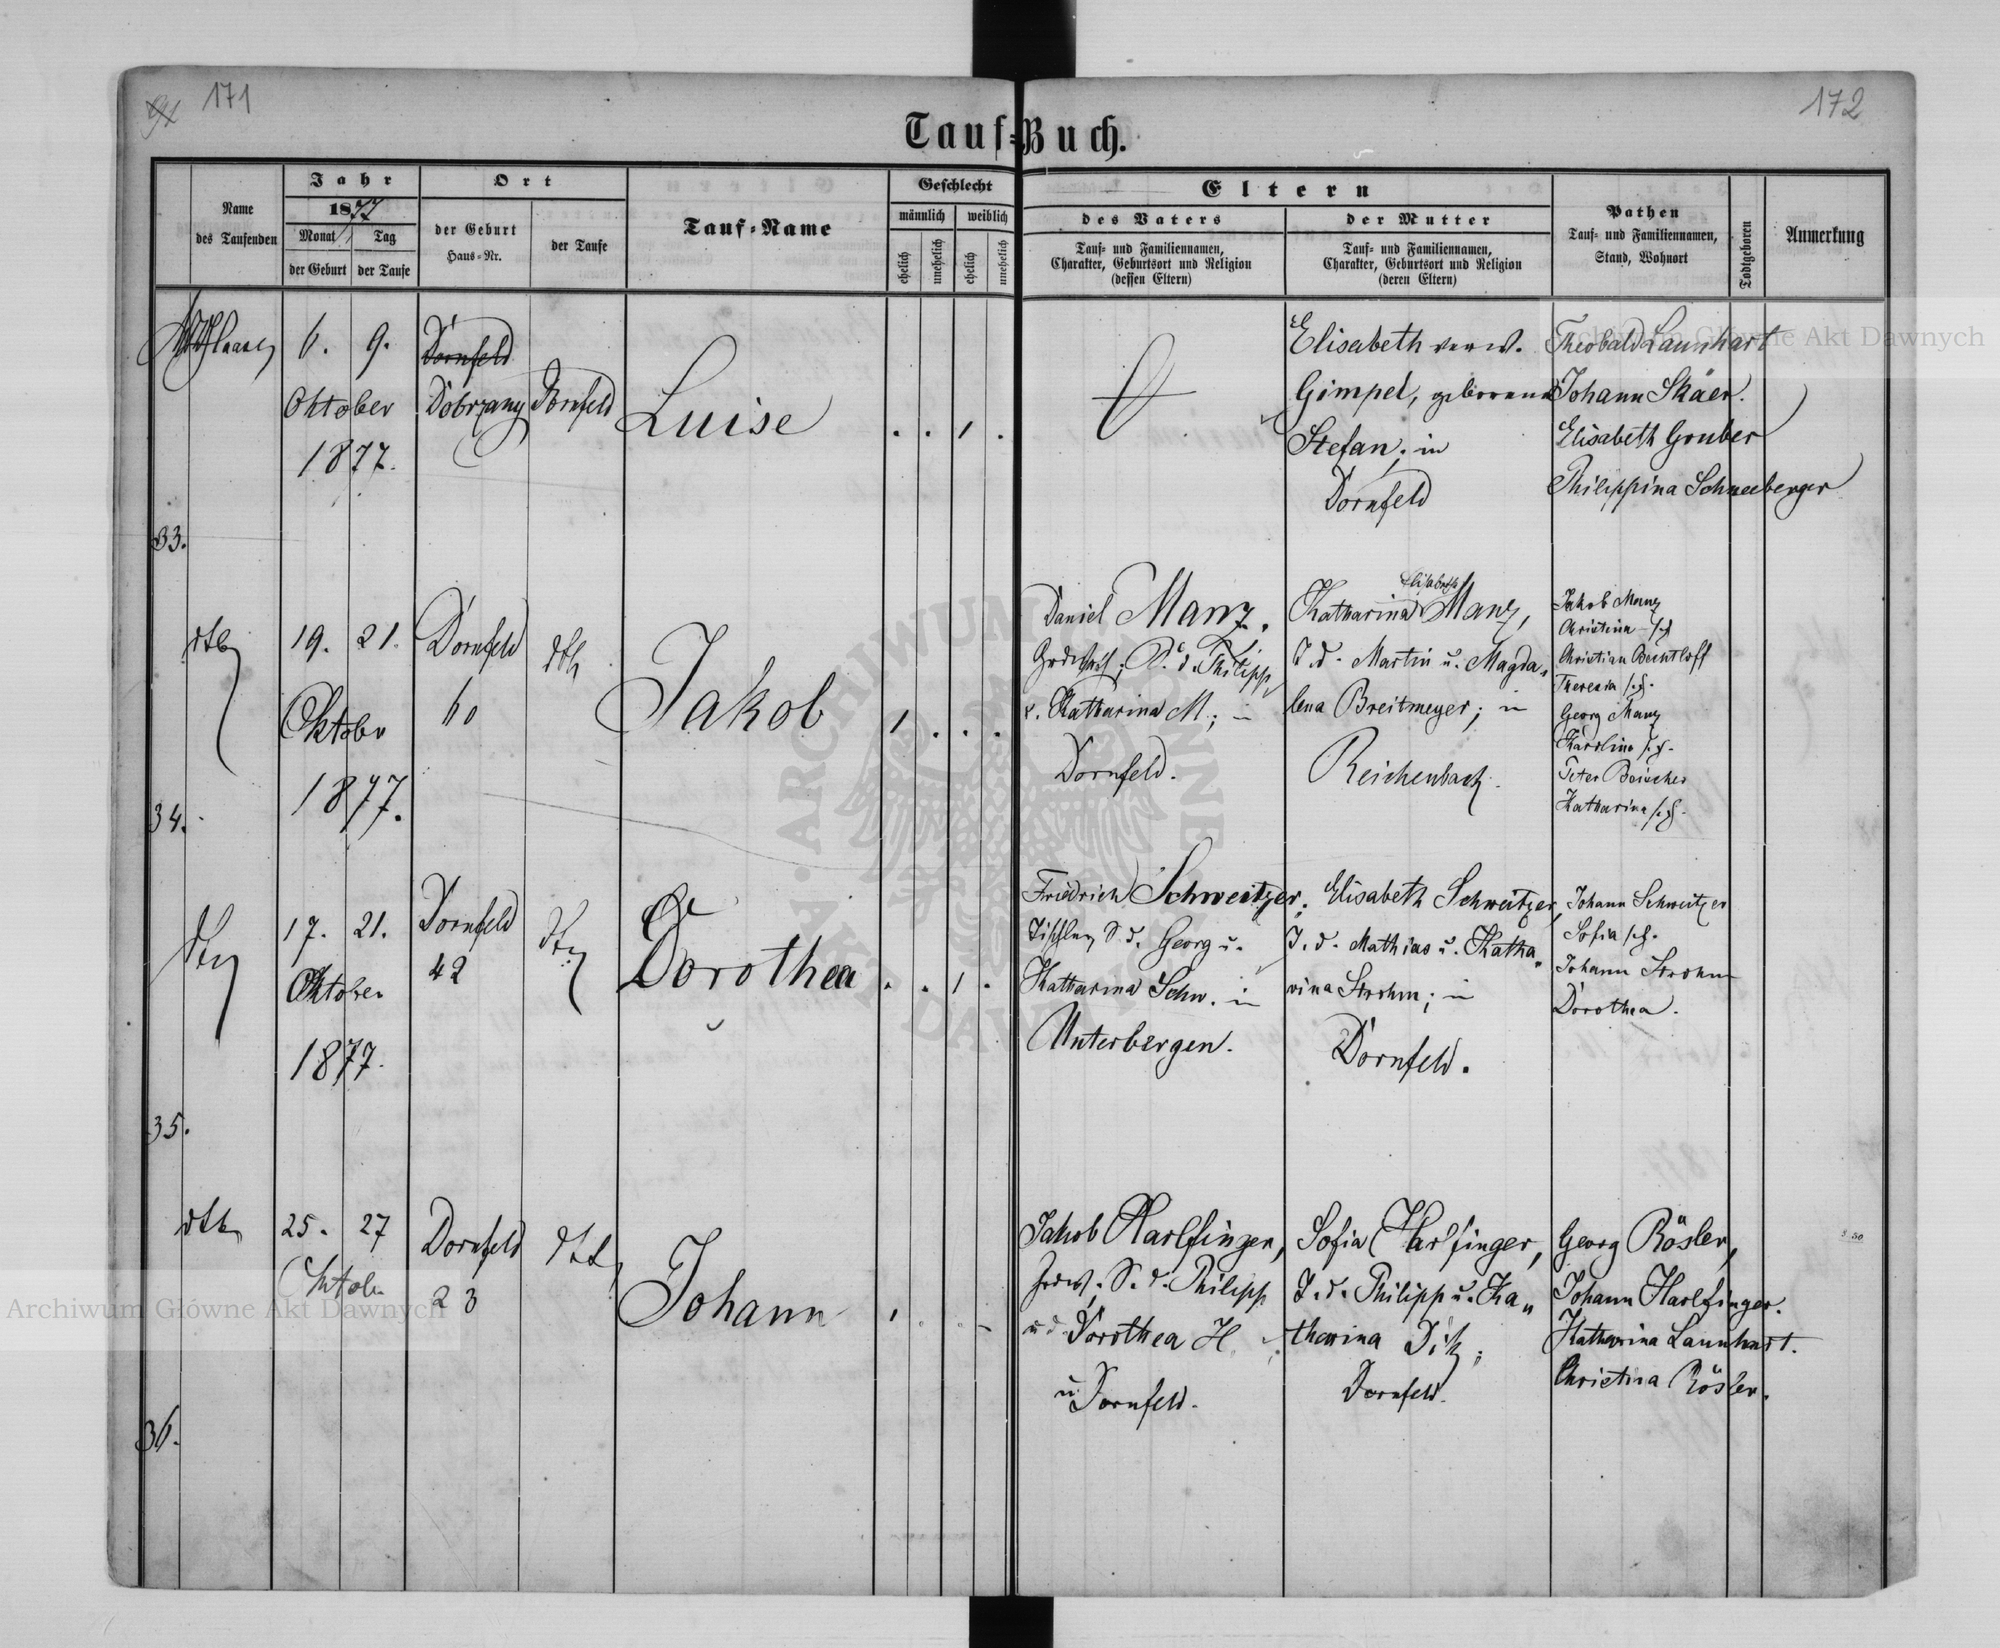 171
172
Tauf-Buch.
Name
des Taufenden
Jahr
1877
Monat
Tag
der Geburt
der Taufe
Ort
der Geburt
Haus-Nr.
der Taufe
Tauf-Name
Geschlecht
männlich
weiblich
ehelich
unehelich
ehelich
unehelich
Eltern
des Vaters
Tauf- und Familiennamen,
Charakter, Geburtsort und Religion
(dessen Eltern)
der Mutter
Tauf- und Familiennamen,
Charakter, Geburtsort und Religion
(deren Eltern)
Pathen
Tauf- und Familiennamen,
Stand, Wohnort
Todtgeboren
Anmerkung
33.
6. 9.
Oktober
1877.
Dornfeld
Dobrzany
Dornfeld
Luise
. . 1 .
Elisabeth verw.
Gimpel, geborene
Stefan; in
Dornfeld
Theobald Launhart
Johann Skäer.
Elisabeth Gruber
Philippina Schneeberger
34.
dtto
19. 21.
Oktober
1877.
Dornfeld
60
dtto
Jakob
1 . . .
Daniel Manz,
S. d. Philipp
u. Katharina M.; in
Dornfeld.
Elisabeth
Katharina Manz,
T. d. Martin u. Magda-
lena Breitmeyer; in
Reichenbach.
Jakob Manz
Christina s. G.
Christian Bechtloff
Theresia s. G.
Georg Manz
Karolina s. G.
Peter
Katharina s. G.
35.
dtto
17. 21.
Oktober
1877.
Dornfeld
42
dtto
Dorothea
. . 1 .
Friedrich Schweitzer,
Tischler, S. d. Georg u.
Katharina Schw. in
Unterbergen.
Elisabeth Schweitzer,
T. d. Mathias u. Katha-
rina Strohm; in
Dornfeld.
Johann Schweitzer
Sofia s. G.
Johann Strohm
Dorothea.
36.
dtto
25. 27
Oktob.
Dornfeld
23
dtto
Johann
1 . . .
Jakob Harlfinger,
Grdw. S. d. Philipp
u. Dorothea H.
Dornfeld.
Sofia Harlfinger,
T. d. Philipp u. Ka-
tharina Ditz;
Dornfeld.
Georg Rösler,
Johann Harlfinger.
Katharina Launhart.
Christina Rösler.
Archiwum Główne Akt Dawnych
Archiwum Główne Akt Dawnych
ARCHIWUM GŁÓWNE AKT DAWNYCH